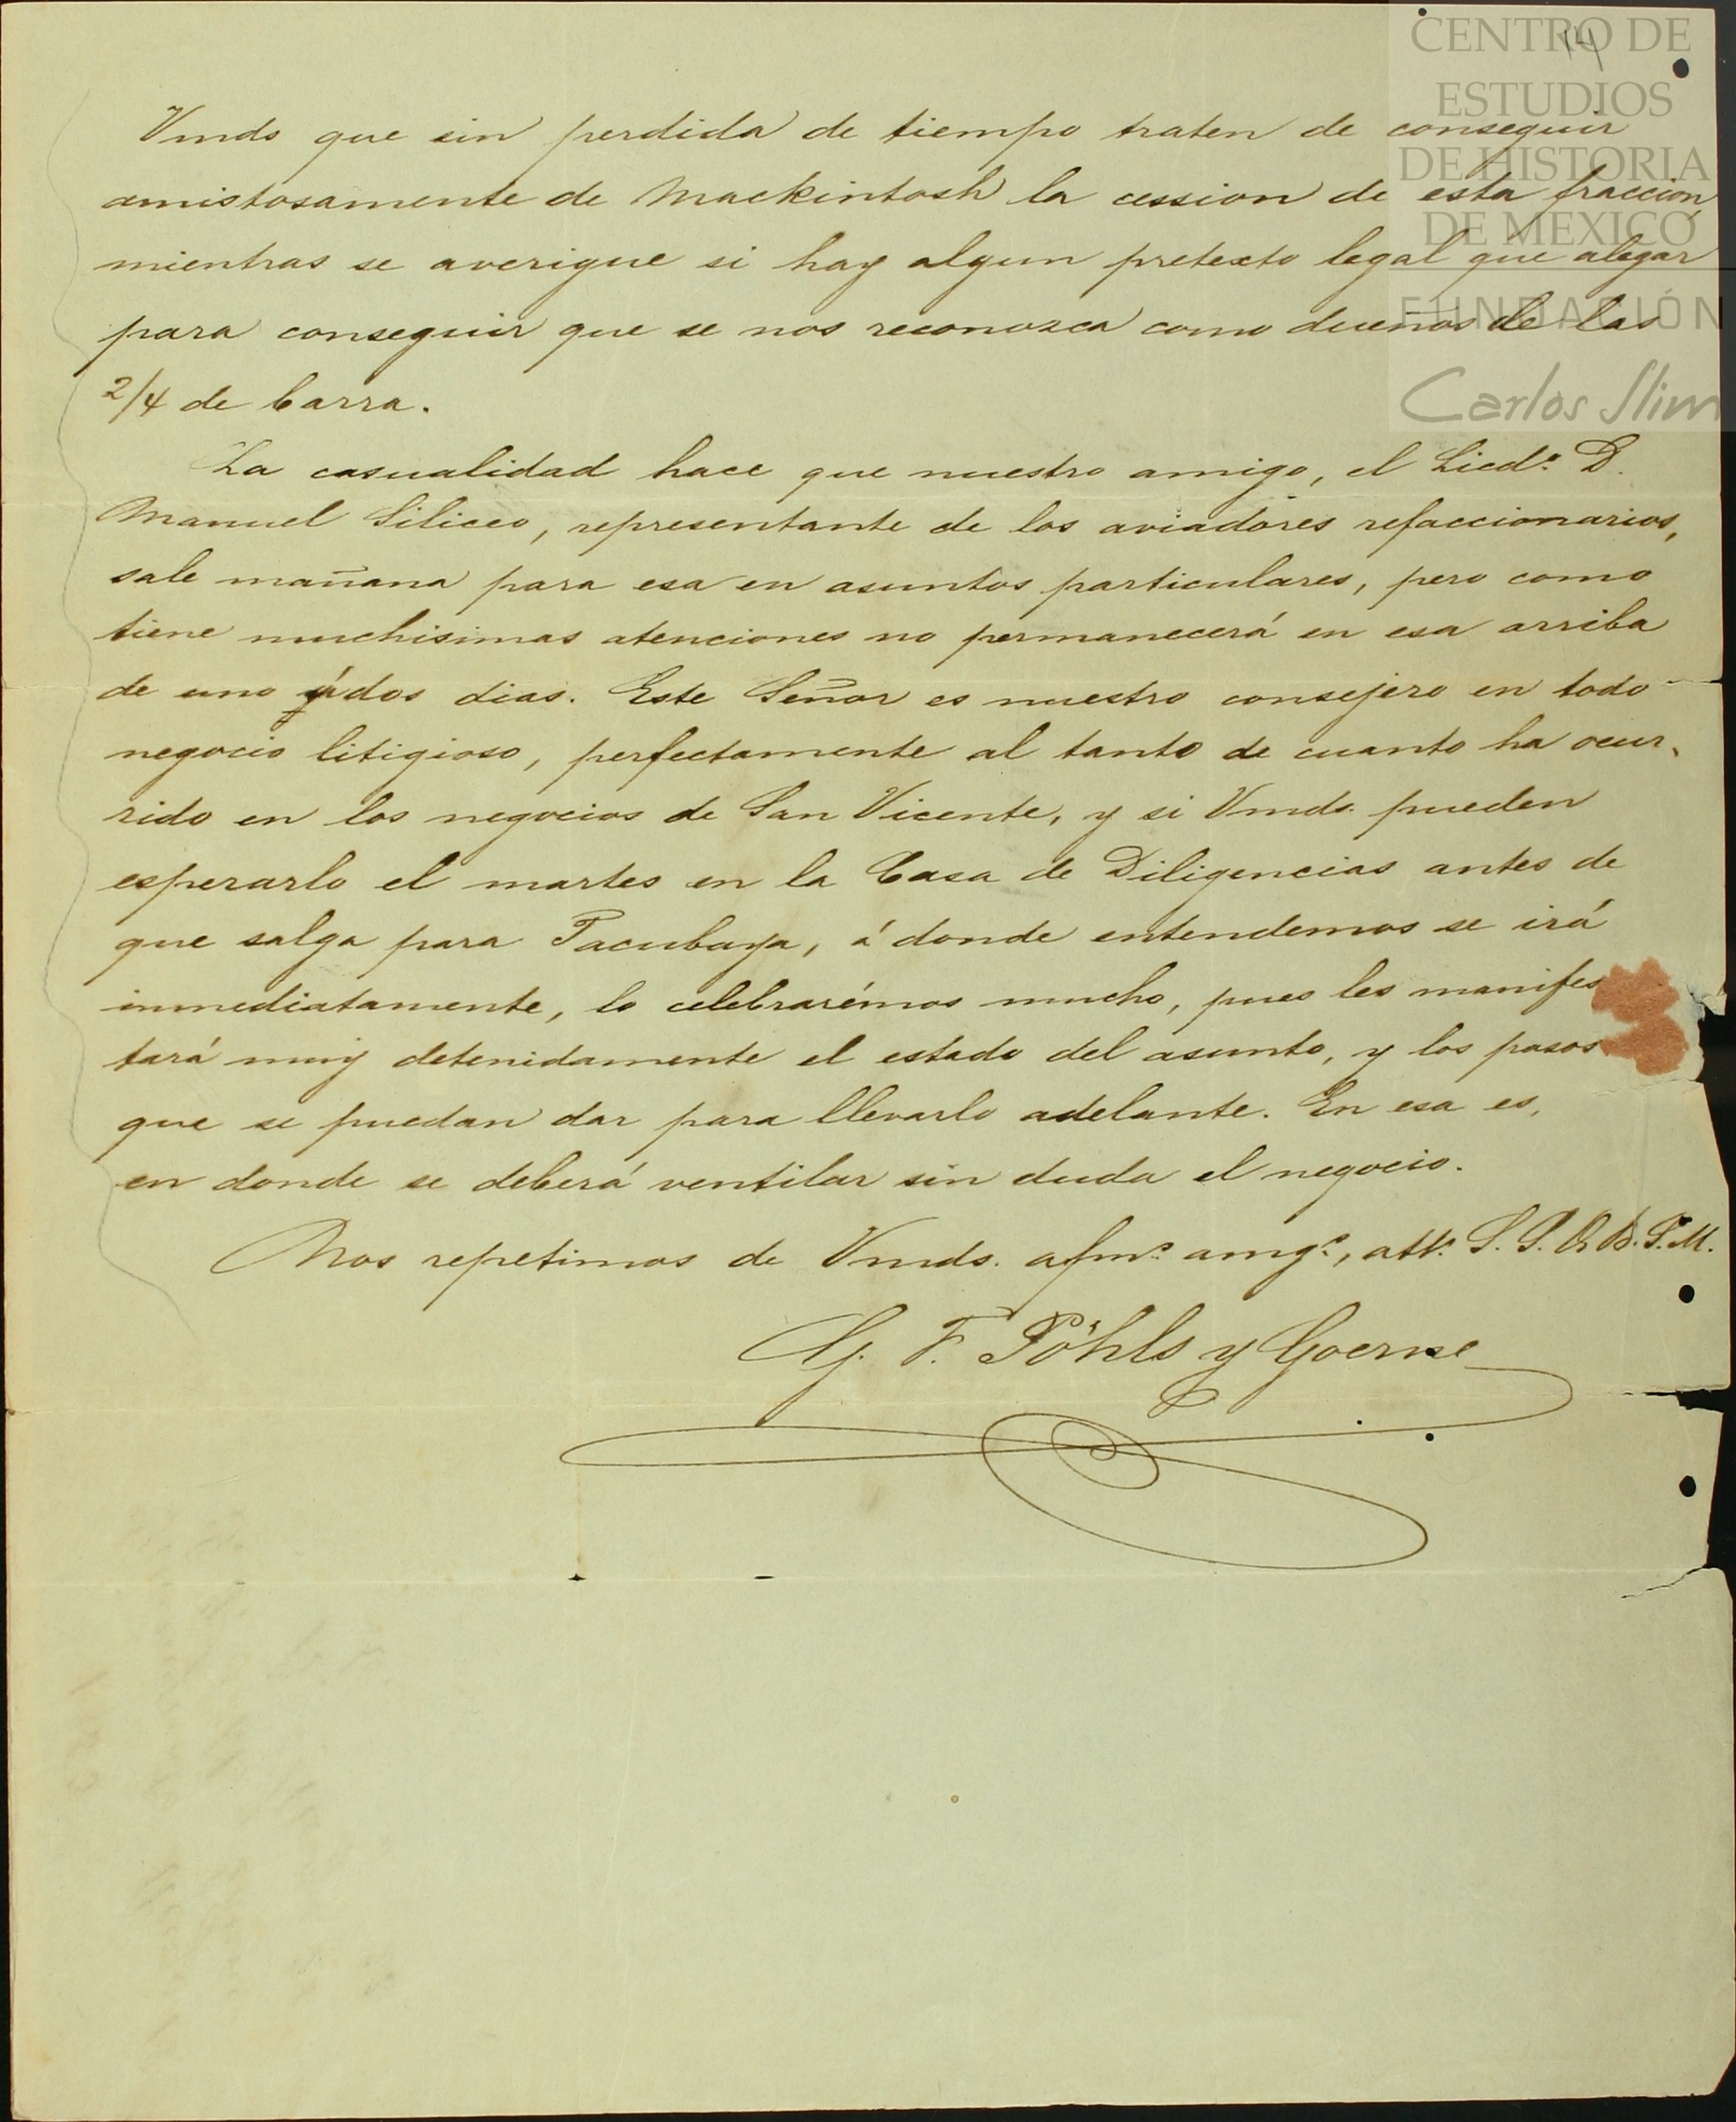 14
CENTRO DE
ESTUDIOS
DE HISTORIA
DE MEXICO
FUNDACIÓN
Carlos Slim
Vmds que sin perdida de tiempo traten de conseguir
amistosamente de Mackintosh la cession de esta fraccion
mientras se averigue si hay algun pretexto legal que alegar
para conseguir que se nos reconozca como dueños de las
2/4 de barra.
La casualidad hace que nuestro amigo, el Licdo. D.
Manuel Siliceo, representante de los aviadores refaccionarios,
sale mañana para esa en asuntos particulares, pero como
tiene muchisimas atenciones no permanecerá en esa arriba
de uno ú dos dias. Este Señor es nuestro consejero en todo
negocio litigioso, perfectamente al tanto de cuanto ha ocur-
rido en los negocios de San Vicente, y si Vmds. pueden
esperarlo el martes en la Casa de Diligencias antes de
que salga para Tacubaya, á donde entendemos se irá
inmediatamente, lo celebrarémos mucho, pues les manifes
tará muy detenidamente el estado del asunto, y los pasos
que se puedan dar para llevarlo adelante. En esa es,
en donde se deberá ventilar sin duda el negocio.
Nos repetimos de Vmds. afmos. amgs., atts. S. S. Q. B. S. M.
G. F. Pöhls y Goerne